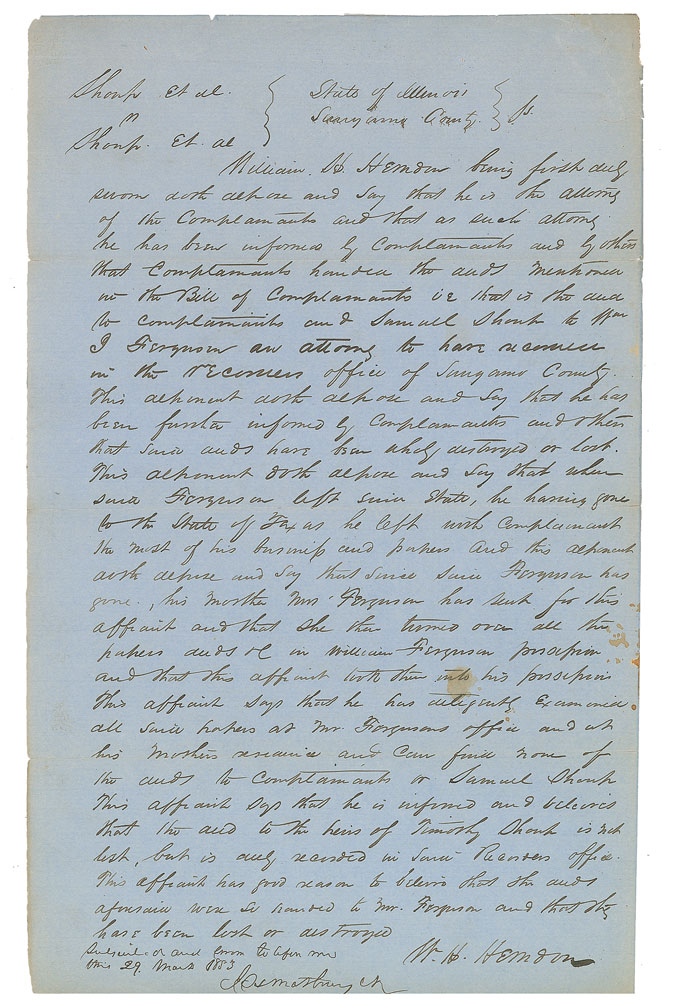 Shoup et al. State of Illinois
vs Sangamo County. ss.
Shoup. Et. al
William. H. Herndon being first duly
sworn doth depose and say that he is the attorny
of the Complainants and that as such attorny
he has been informed by Complainants and by others
that Complainants handed the deeds mentioned
in the Bill of Complainants ie that is the deed
to complainants and Samuel Shoup to Wm
I Ferguson an attorny to have recorded
in the recorders office of Sangamo County.
This deponent doth depose and say that he has
been further informed by Complainants and others
that said deeds have been wholy destroyed or lost.
This deponent doth depose and say that when
said Ferguson left said State, he having gone
to the State of Texas he left with Complainant
the most of his business and papers and this deponent
doth depose and say that since said Ferguson has
gone, his mother Mrs Ferguson has sent for this
affiant and that she then turned over all the
papers deeds &c in William Ferguson possession
and that this affiant took them into his possession
This affiant says that he has diligently Examined
all said papers at Mr. Fergusons office and at
his Mothers residence and can find none of
the deeds to Complainants or Samuel Shoup
This affiant says that he is informed and believes
that the deed to the heirs of Timothy Shoup is not
lost, but is duly recorded in said Recorders office.
This affiant has good reason to believe that the deeds
aforesaid were so handed to Mr. Ferguson and that they
have been lost or destroyed
Subscribed and sworn to before me W. H. Herndon
this 29 March 1853